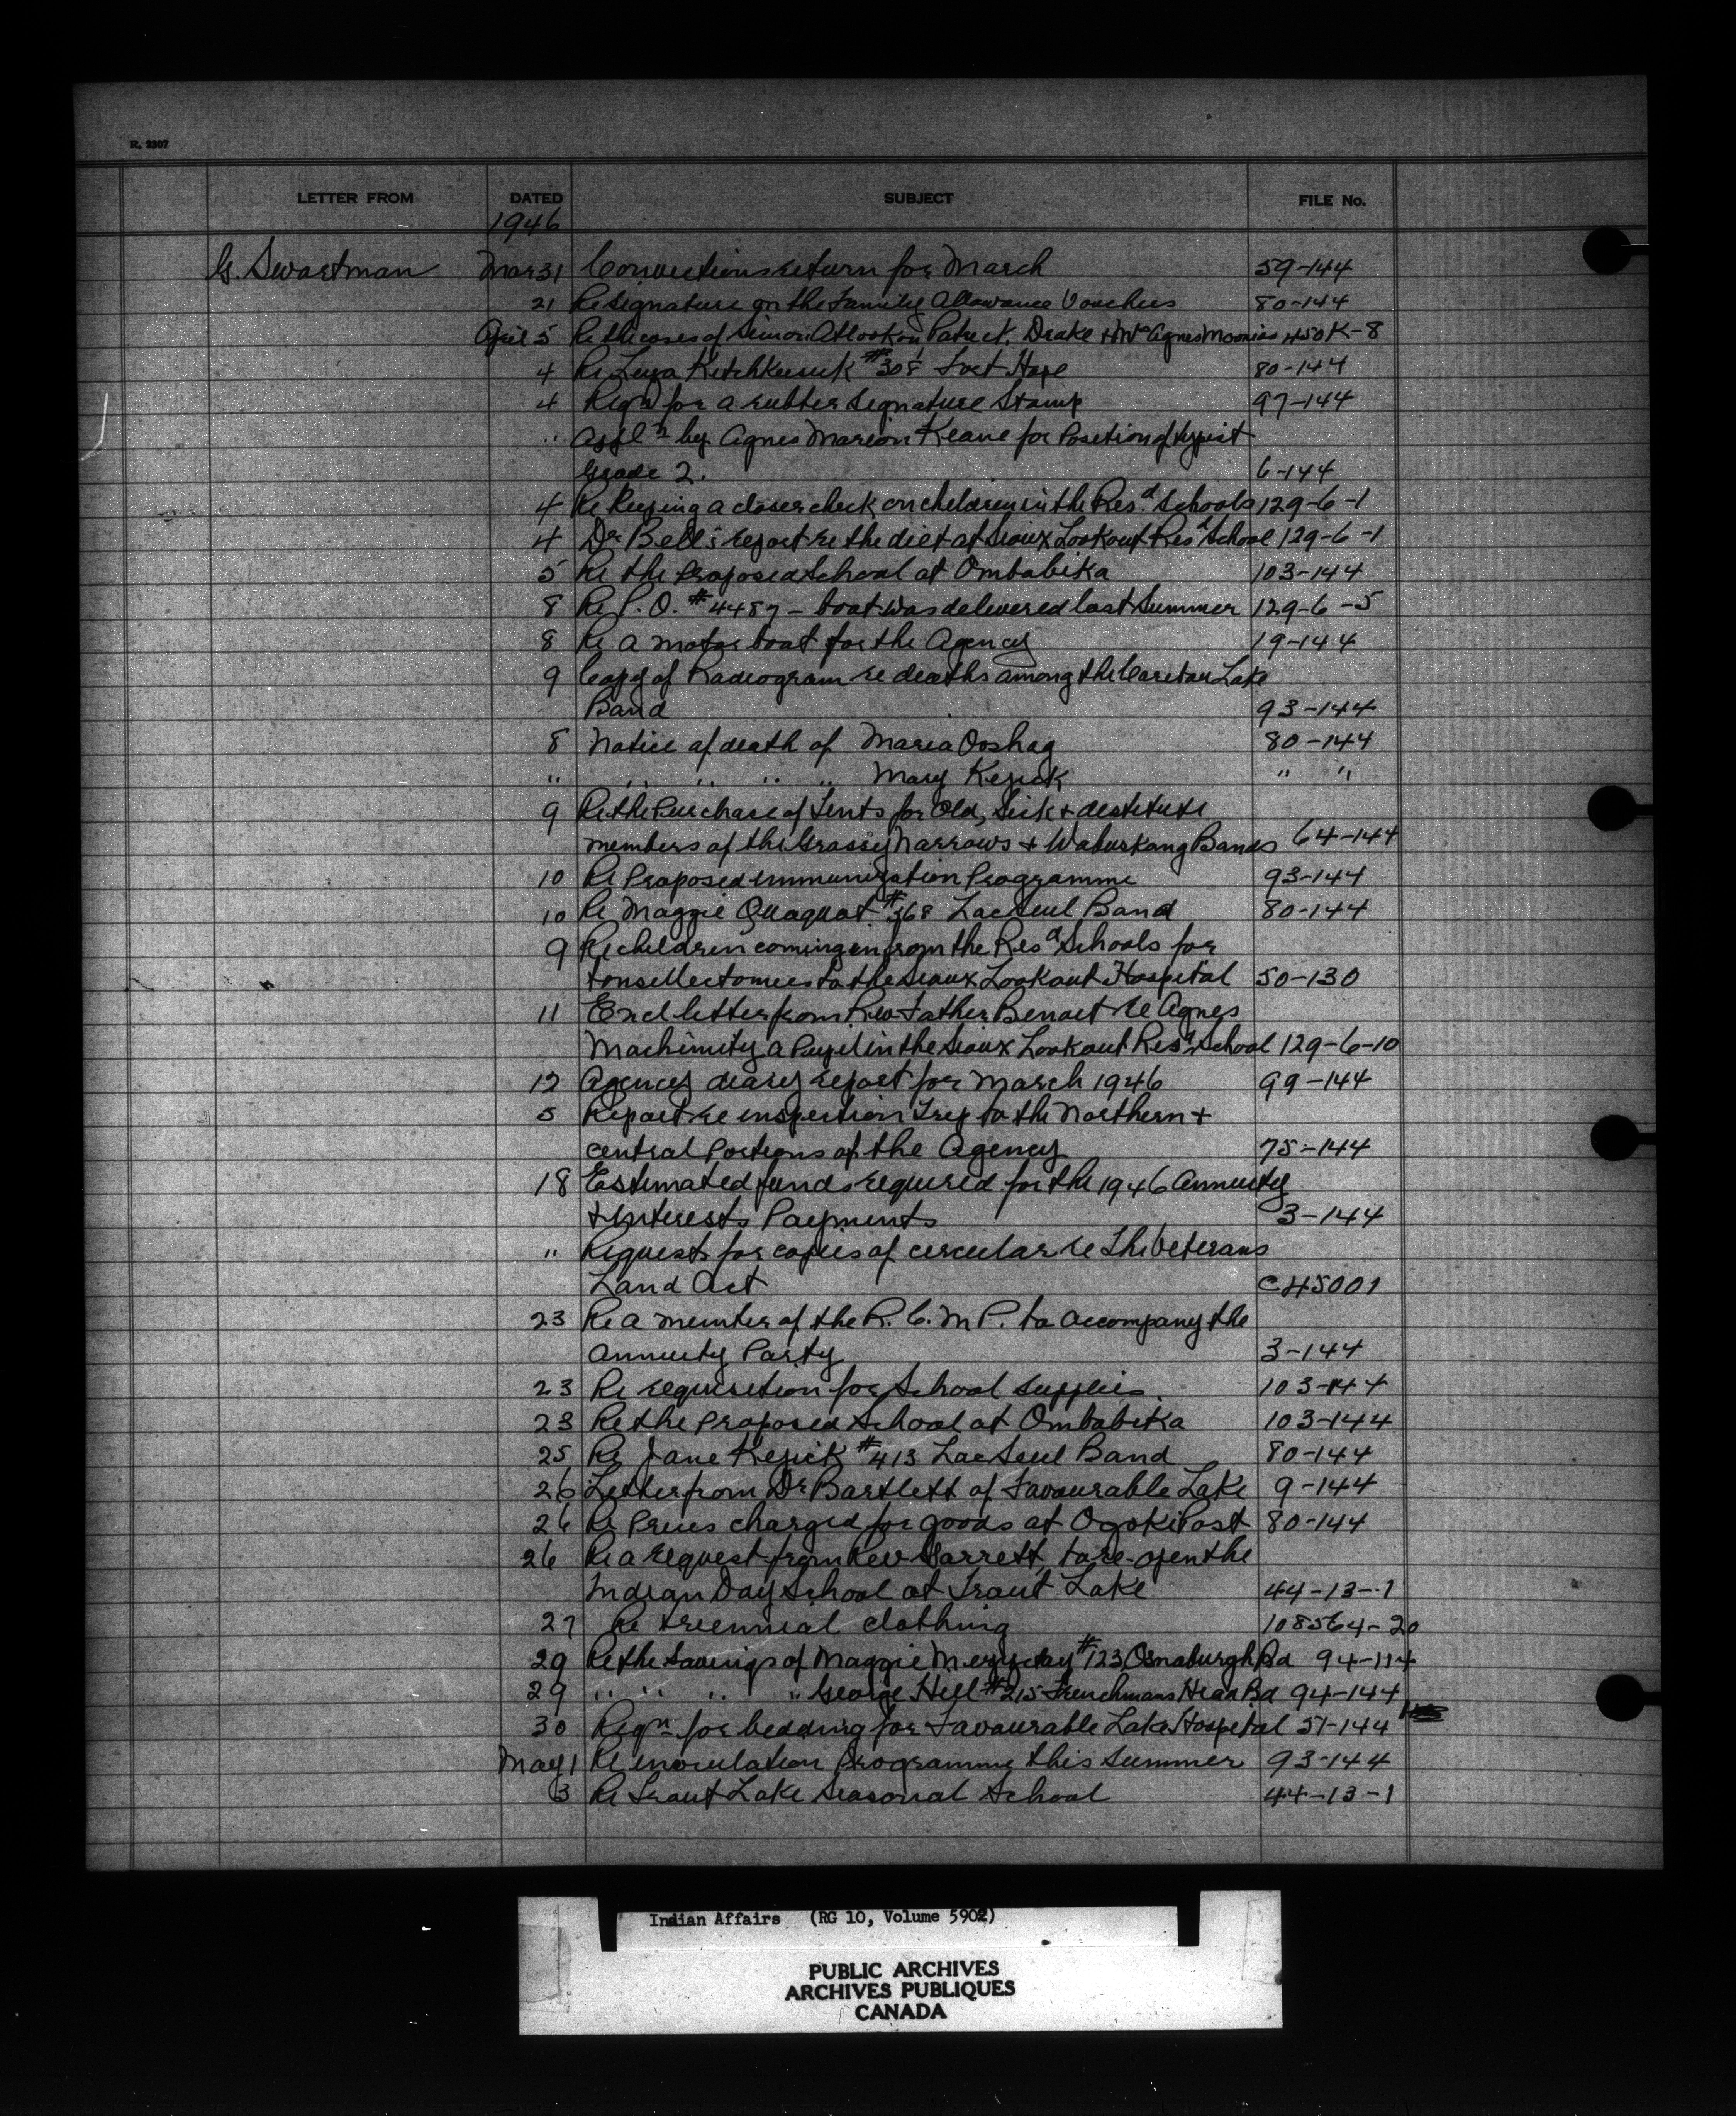 R. 2307
LETTER FROM DATED SUBJECT FILE No.
1946
G. Swartman Mar 31 Convections return for March 59-144
21 Re signature on the Family Allowance Vouchers 80-144
April 5 Re the cases of Simon Atlookan Patrick Drake + Mrs Agnes Moonias 450K-8
4 Re #308 Fort Hope 80-144
4 Reqn for a rubber signature Stamp 97-144
" Appln by Agnes Marion Keane for Position of typist
Grade 2. 6-144
4 Re Keeping a closer check on children in the Resd. Schools 129-6-1
4 Dr Bell's report re the diet at Sioux Lookout Resd School 129-6-1
5 Re the Proposed School at Ombabika 103-144
8 Re P.O. #4487 - boat was delivered last Summer 129-6-5
8 Re a motor boat for the Agency 19-144
9 Copy of Radiogram re deaths among the Caribou Lake
Band 93-144
8 Notice of death of Maria Ooshag 80-144
" " " " " Mary Kejick " "
9 Re the Purchase of Tents for Old, Sick + destitute
members of the Grassy Narrows + Wabuskang Bands 64-144
10 Re Proposed immunization Programme 93-144
10 Re Maggie Quaquat #368 Lac Seul Band 80-144
9 Re children coming in from the Resd Schools for
tonsillectomies to the Sioux Lookout Hospital 50-130
11 Encl letter from Rev Father Benoit re Agnes
Machimity a Pupil in the Sioux Lookout Resd School 129-6-10
12 Agency diary report for March 1946 99-144
5 Report re inspection Trip to the Northern +
central Portions of the Agency 75-144
18 Estimated funds required for the 1946 Annuity
+ Interests Payments 3-144
" Requests for copies of circular re The Veterans
Land Act C45001
23 Re a member of the R.C.M.P. to accompany the
Annuity Party 3-144
23 Re requisition for School supplies. 103-144
23 Re the Proposed School at Ombabika 103-144
25 Re Jane Kejick #413 Lac Seul Band 80-144
26 Letter from Dr Bartlett of Favourable Lake 9-144
26 Re Prices charged for goods at Ogoki Post 80-144
26 Re a request from Rev Garrett to re-open the
Indian Day School at Trout Lake 44-13-1
27 Re triennial clothing 108564-20
29 Re the Savings of Maggie #123 Osnaburgh Bd 94-144
29 " " " " George Hill #215 Frenchmans Head Bd 94-144
30 Reqn for bedding for Favourable Lake Hospital 51-144
May 1 Re inoculation Programme this summer 93-144
3 Re Trout Lake Seasonal School 44-13-1
Indian Affairs (RG 10, Volume 5902)
PUBLIC ARCHIVES
ARCHIVES PUBLIQUES
CANADA